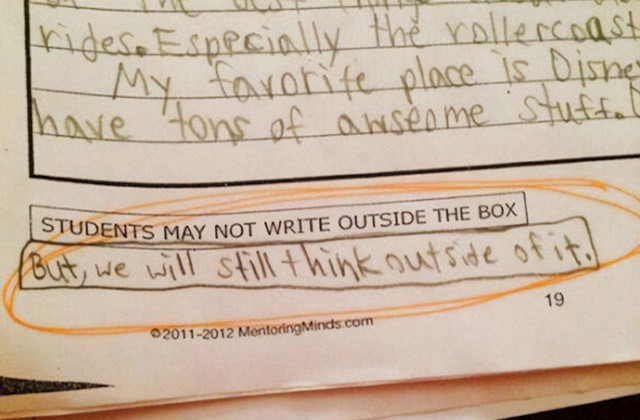 the best
rides. Especially the rollercoast
My favorite place is Disney
have tons of awseome stuff.
STUDENTS MAY NOT WRITE OUTSIDE THE BOX
But, we will still think outside of it.
19
©2011-2012 MentoringMinds.com